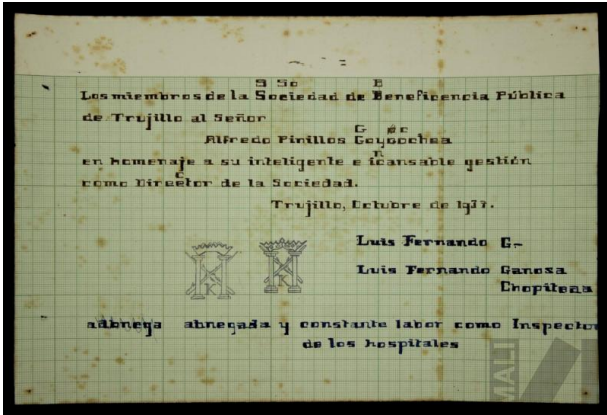 g So B
Los miembros de la Sociedad de Beneficencia Pública
de Trujillo al Señor
G oc
Alfredo Pinillos Goygochea
n
en homenaje a su inteligente e icansable gestión
c
como Director de la Sociedad.
Trujillo, Octubre de 1937.
Luis Fernando G.-
Luis Fernando Ganosa
Chopitena
adbnega abnegada y constante labor como Inspector
de los hospitales
MALI